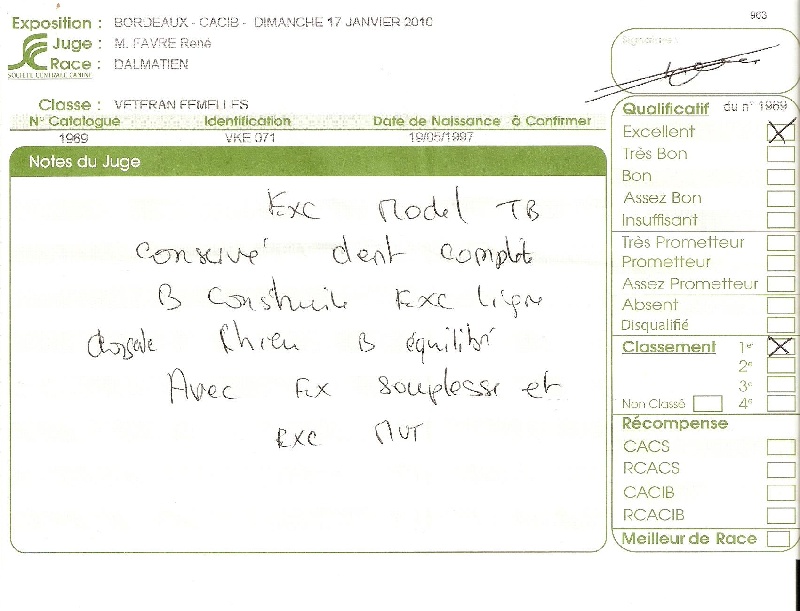 Exposition : BORDEAUX - CACIB - DIMANCHE 17 JANVIER 2010
903
Juge : M. FAVRE René
Race : DALMATIEN
SOCIÉTÉ CENTRALE CANINE
Signature :
Classe : VETERAN FEMELLES
N° Catalogue Identification Date de Naissance à Confirmer
1969 VKE 071 19/05/1997
Notes du Juge
Exc Model TB
Conservé dent complète
B Construite Exc ligne
dorsale Rhieu B équilibré
Avec Ex souplesse et
Exc MVT
Qualificatif du n° 1969
Excellent
Très Bon
Bon
Assez Bon
Insuffisant
Très Prometteur
Prometteur
Assez Prometteur
Absent
Disqualifié
Classement 1er
2e
3e
Non Classé 4e
Récompense
CACS
RCACS
CACIB
RCACIB
Meilleur de Race